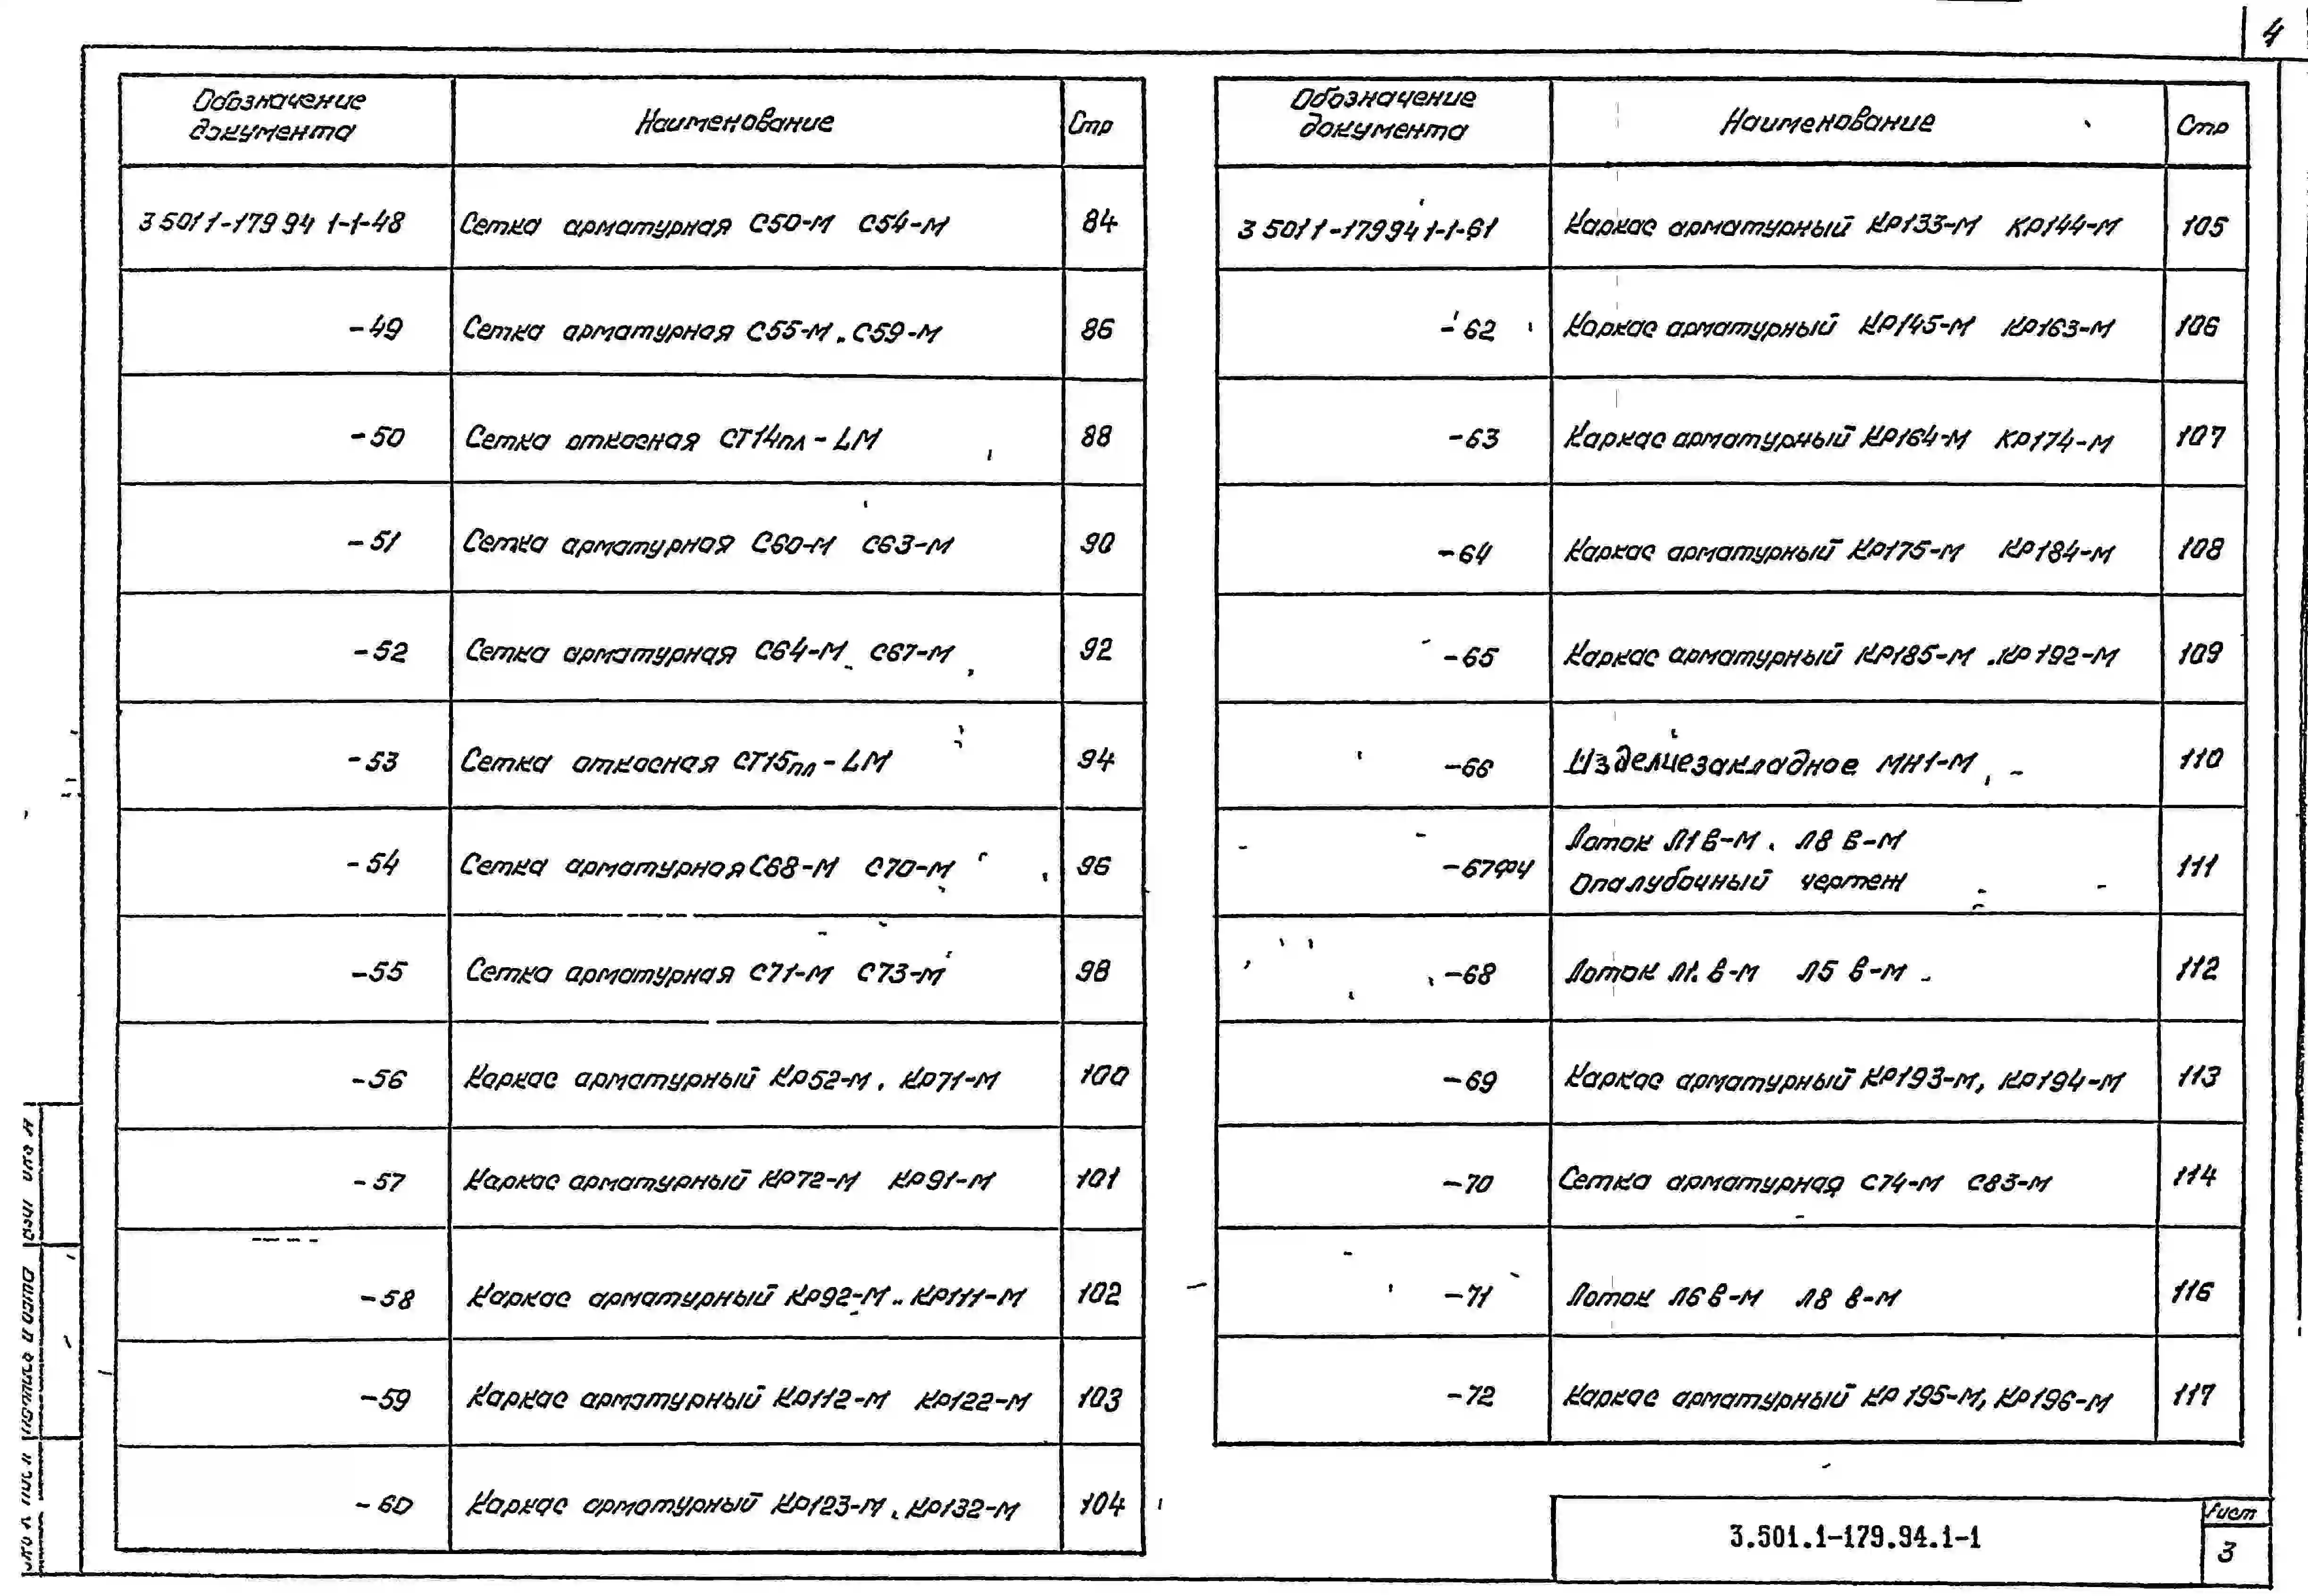 4
Обозначение документа Наименование Стр
3 501 1-179 94 1-1-48 Сетка арматурная С50-М С54-М 84
-49 Сетка арматурная С55-М..С59-М 86
-50 Сетка откосная СТ14пл-LM 88
-51 Сетка арматурная С60-М С63-М 90
-52 Сетка арматурная С64-М С67-М 92
-53 Сетка откосная СТ15пл-LM 94
-54 Сетка арматурная С68-М С70-М 96
-55 Сетка арматурная С71-М С73-М 98
-56 Каркас арматурный КР52-М. КР71-М 100
-57 Каркас арматурный КР72-М КР91-М 101
-58 Каркас арматурный КР92-М..КР111-М 102
-59 Каркас арматурный КР112-М КР122-М 103
-60 Каркас арматурный КР123-М. КР132-М 104
Обозначение документа Наименование Стр
3 501 1-179 94 1-1-61 Каркас арматурный КР133-М КР144-М 105
-62 Каркас арматурный КР145-М КР163-М 106
-63 Каркас арматурный КР164-М КР174-М 107
-64 Каркас арматурный КР175-М КР184-М 108
-65 Каркас арматурный КР185-М .КР192-М 109
-66 Изделие закладное МН1-М 110
-67ФЧ Лоток Л1 в-М . Л8 в-М
Опалубочный чертеж 111
-68 Лоток Л1. в-М Л5 в-М 112
-69 Каркас арматурный КР193-М, КР194-М 113
-70 Сетка арматурная С74-М С83-М 114
-71 Лоток Л6 в-М Л8 в-М 116
-72 Каркас арматурный КР195-М, КР196-М 117
3.501.1-179.94.1-1
Лист
3